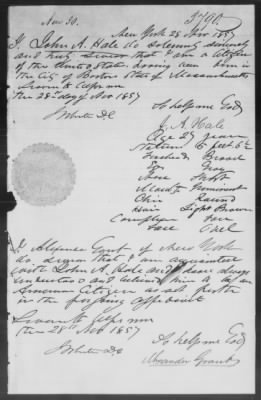 Nov 30.
3790.
New York 28 Nov 1857
I, John A. Hale do solemnly sincerely
and truly swear that I am a citizen
of the United States having been born in
the City of Boston State of Massachusetts
Sworn to before me
this 28th day of Nov 1857
So help me God
J White
J. A. Hale
Age 27 years
Stature 6 feet
Forehead Broad
Eyes Gray
Nose
Mouth Prominent
Chin Round
Hair Light Brown
Complexion Fair
Face Oval
I, Grant of New York
do swear that I am acquainted
with John A. Hale and have always
understood and believed him to be an
American Citizen as set forth
in the foregoing affidavit
Sworn to before me
this 28th Nov 1857
So help me God
J White
Alexander Grant